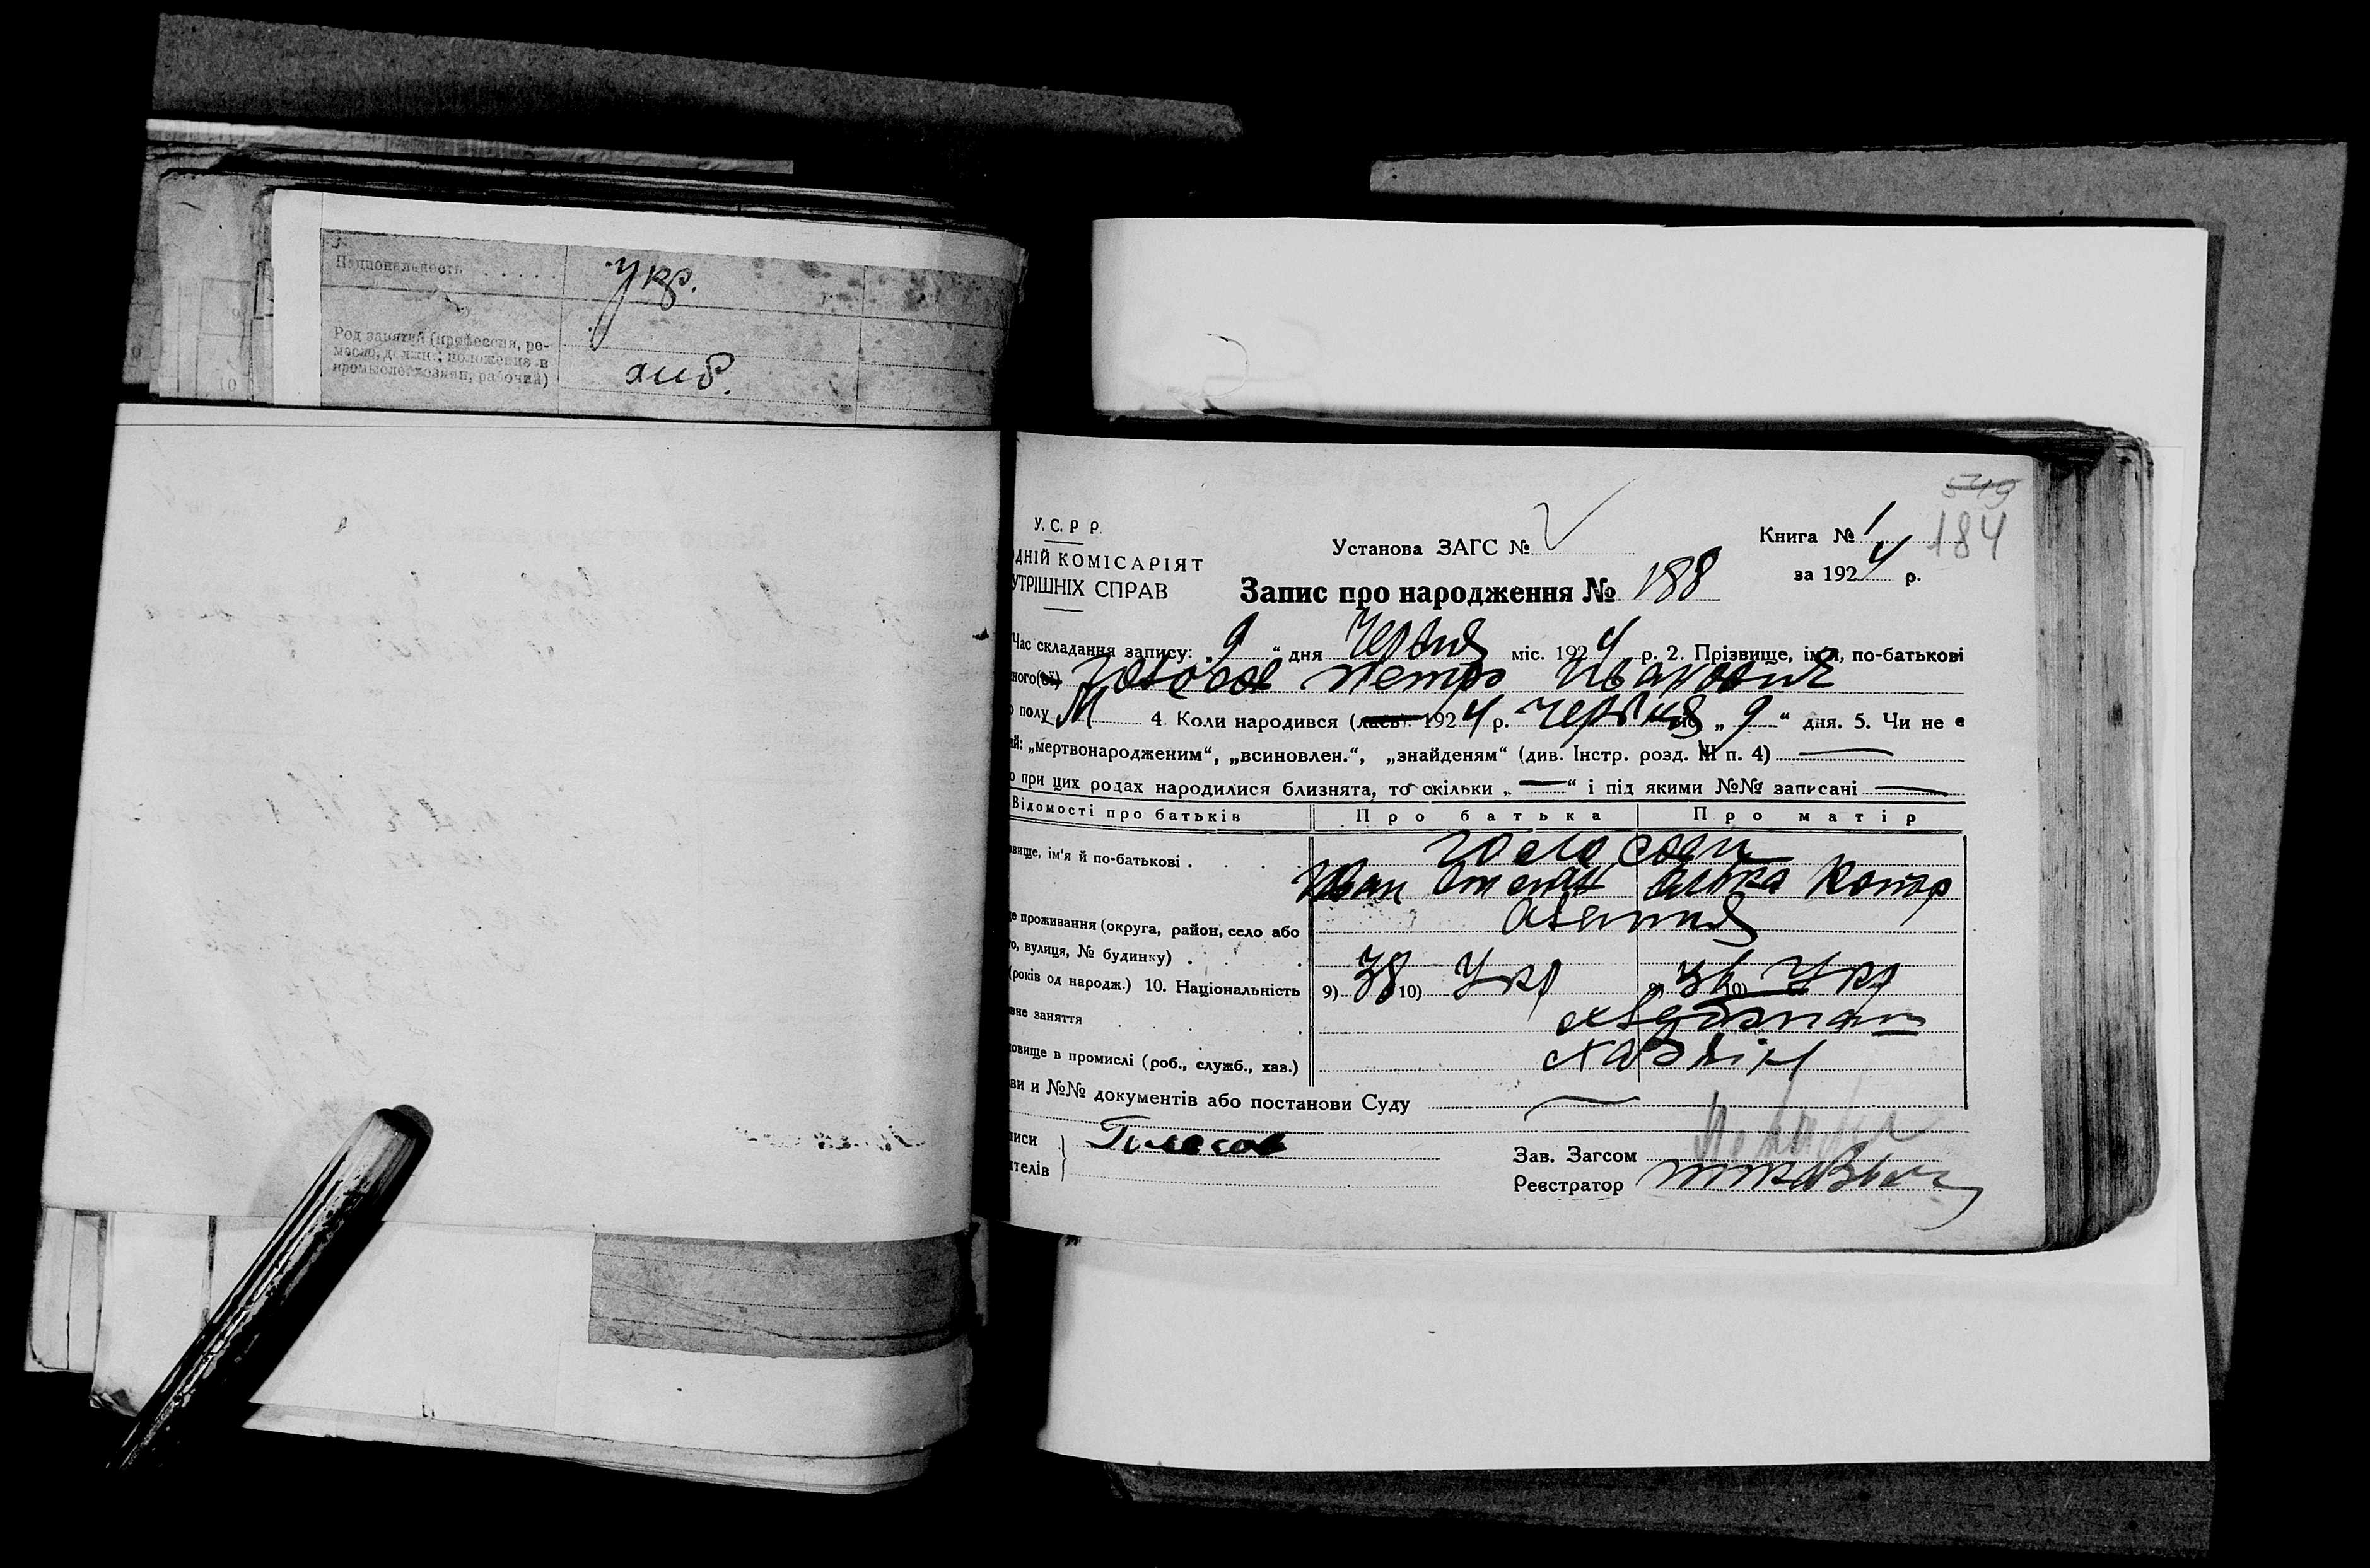 Национальность . . . . . .
укр.
Род занятий (профессия, ре-
месло, должн; положение в
промысле: хозяин, рабочий)
хліб.
549
184
У.С.Р.Р.
ДНІЙ КОМІСАРІЯТ
УТРІШНІХ СПРАВ
Установа ЗАГС №
Книга № 1
за 1924 р.
Запис про народження № 188
Час складання запису: „9“ дня Червня міс. 1924 р. 2. Прізвище, ім'я, по-батькові
ного(ої) Петро Иванович
полу М 4. Коли народився (лась). 1924 р. червня „9“ дня. 5. Чи не є
ий: „мертвонародженим“, „всиновлен.“, „знайденям“ (див. Інстр. розд. III п. 4) —
о при цих родах народилися близнята, то скільки „—“ і під якими №№ записані —
Відомості про батьків
Про батька
Про матір
звище, ім'я й по-батькові .
Иван Степан
це проживання (округа, район, село або
то, вулиця, № будинку) .
(років од народж.) 10. Національність
9) 38 10) Укр
9) 36 10) Укр
вне заняття
хлібороп
овище в промислі (роб., служб., хаз.)
хазяін
ви и №№ документів або постанови Суду
писи
ителів
Голосов
Зав. Загсом
Реєстратор